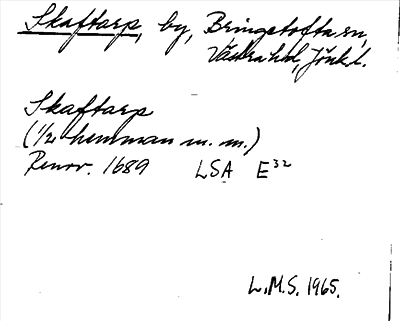 Skaftarp, by, Bringetofta sn,
Västra hd, Jönk.l.
Skaftarp
(1/2 hemman m. m.)
Renov. 1689 LSA E32
L.M.S. 1965.